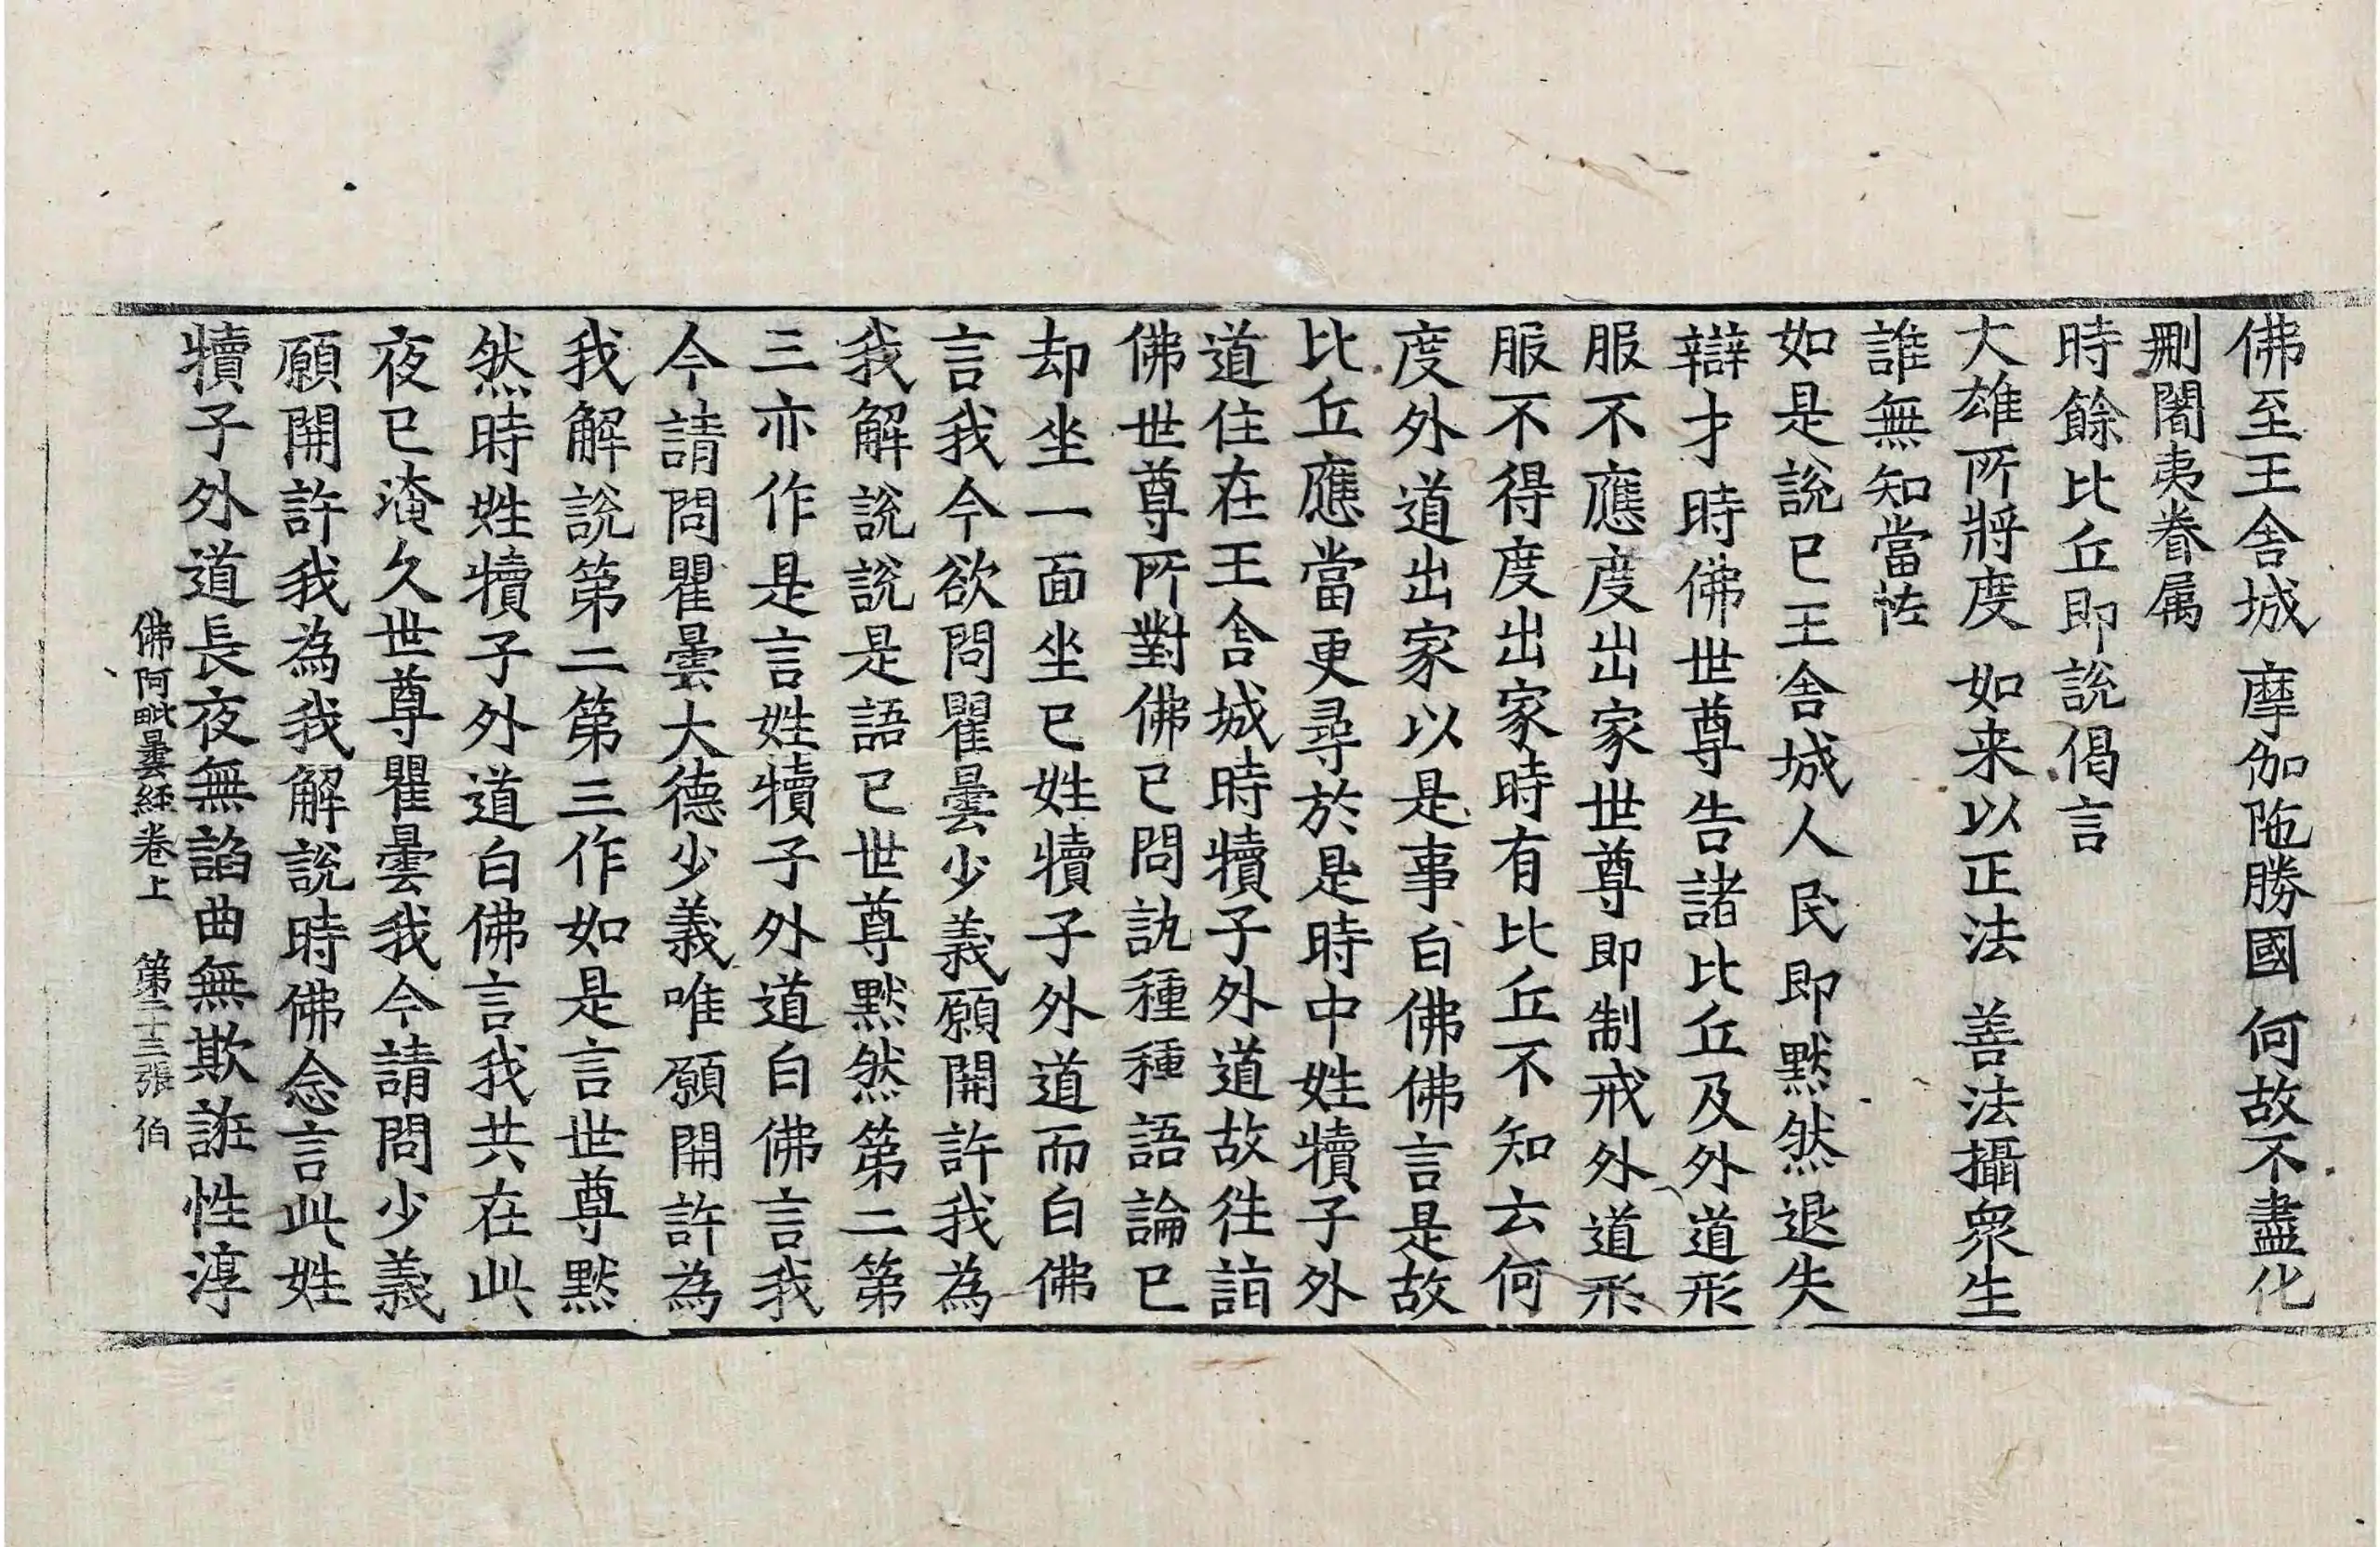 佛至王舍城　摩伽陁勝國　何故不盡化
刪闍夷眷属
時餘比丘即說偈言
大雄所將度　如来以正法　善法攝衆生
誰無知當恠
如是說已王舍城人民即黙然退失
辯才時佛世尊告諸比丘及外道形
服不應度出家世尊即制戒外道形
服不得度出家時有比丘不知云何
度外道出家以是事白佛佛言是故
比丘應當更尋於是時中姓犢子外
道住在王舍城時犢子外道故往詣
佛世尊所對佛已問訊種種語論已
却坐一面坐已姓犢子外道而白佛
言我今欲問瞿曇少義願開許我為
我解說說是語已世尊黙然第二第
三亦作是言姓犢子外道白佛言我
今請問瞿曇大德少義唯願開許為
我解說第二第三作如是言世尊黙
然時姓犢子外道白佛言我共在此
夜已淹久世尊瞿曇我今請問少義
願開許我為我解說時佛念言此姓
犢子外道長夜無諂曲無欺誑性淳
佛阿毗曇経卷上　第二十三張　伯